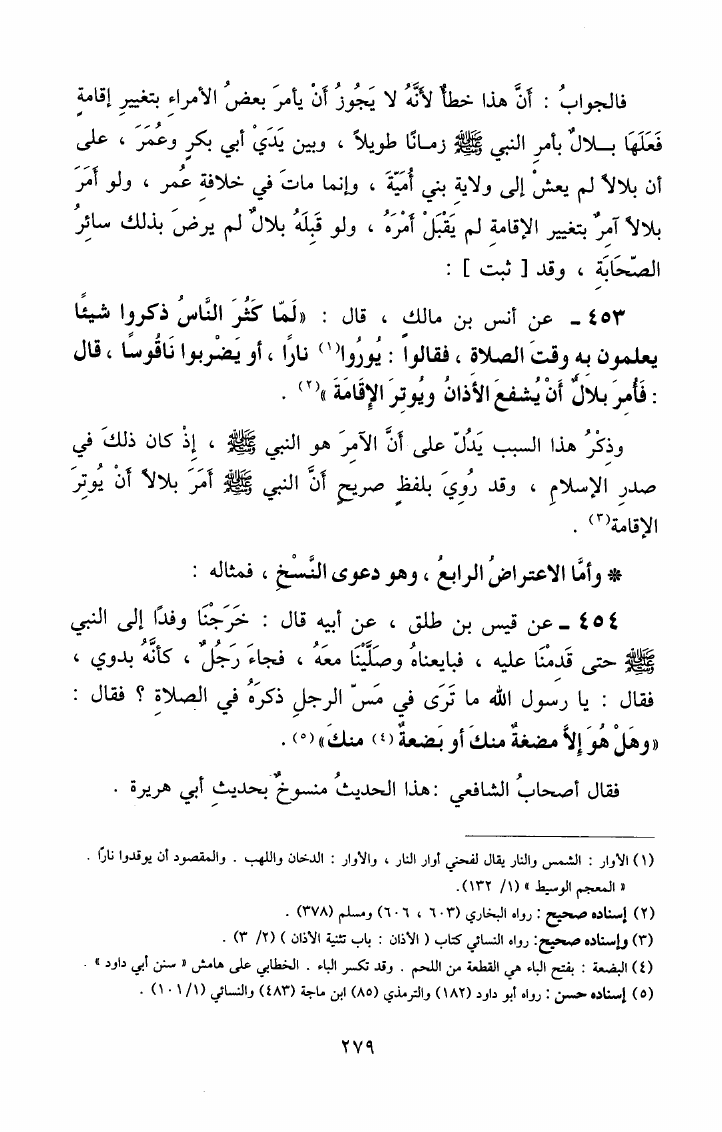 فالجوابُ : أنَّ هذا خطأٌ لأنَّهُ لا يَجُوزُ أنْ يأمرَ بعضُ الأمراءِ بتغييرِ إقامةٍ
فَعَلَهَا بـلالٌ بأمرِ النبي ﷺ زمـانًا طويلاً ، وبين يَدَيْ أبي بكرٍ وعُمَرَ ، على
أن بلالاً لم يعشْ إلى ولايةِ بني أُمَيّةَ ، وإنما ماتَ في خلافةِ عُمر ، ولو أمَرَ
بلالاً آمرٌ بتغييرِ الإقامةِ لم يَقْبَلْ أمْرَهُ ، ولو قَبِلَهُ بلالٌ لم يرضَ بذلك سائرُ
الصّحَابَةِ ، وقد [ ثبت ] :
٤٥٣ ـ عن أنس بن مالك ، قال : «لَمّا كَثُرَ النَّاسُ ذكروا شيئًا
يعلمون به وقتَ الصلاة ، فقالوا : يُورُوا(١) نارًا ، أو يَضْربوا نَاقُوسًا ، قال
: فَأُمرَ بلالٌ أنْ يُشفعَ الأذانُ ويُوترَ الإِقَامَةَ »(٢) .
وذِكْرُ هذا السببِ يَدُلّ على أنَّ الآمرَ هو النبي ﷺ ، إذْ كان ذلكَ في
صدرِ الإسلامِ ، وقد رُوِيَ بلفظٍ صريحٍ أنَّ النبي ﷺ أمَرَ بلالاً أنْ يُوتِرَ
الإقامة(٣) .
* وأمَّا الاعتراضُ الرابعُ ، وهو دعوى النَّسْخِ ، فمثاله :
٤٥٤ ـ عن قيس بن طلق ، عن أبيه قال : خَرَجْنَا وفدًا إلى النبي
ﷺ حتى قَدِمْنَا عليه ، فبايعناهُ وصَلَّيْنَا معهُ ، فجاءَ رَجُلٌ ، كأنَّهُ بدوي ،
فقال : يا رسول الله ما تَرَى في مَسّ الرجلِ ذكرَهُ في الصلاةِ ؟ فقال :
«وهَلْ هُوَ إلاَّ مضغةٌ منكَ أو بَضعةٌ(٤) منكَ»(٥) .
فقال أصحابُ الشافعي :هذا الحديثُ منسوخٌ بحديثِ أبي هريرة .
(١) الأوار : الشمس والنار يقال لفحني أوار النار ، والأوار : الدخان واللهب . والمقصود أن يوقدوا نارًا .
« المعجم الوسيط » (١/ ١٣٢).
(٢) إسناده صحيح : رواه البخاري (٦٠٣ ، ٦٠٦) ومسلم (٣٧٨) .
(٣) وإسناده صحيح: رواه النسائي كتاب ( الأذان : باب تثنية الأذان ) (٢/ ٣) .
(٤) البضعة : بفتح الباء هي القطعة من اللحم . وقد تكسر الباء . الخطابي على هامش « سنن أبي داود » .
(٥) إسناده حسن : رواه أبو داود (١٨٢) والترمذي (٨٥) ابن ماجة (٤٨٣) والنسائي (١٠١/١) .
٢٧٩